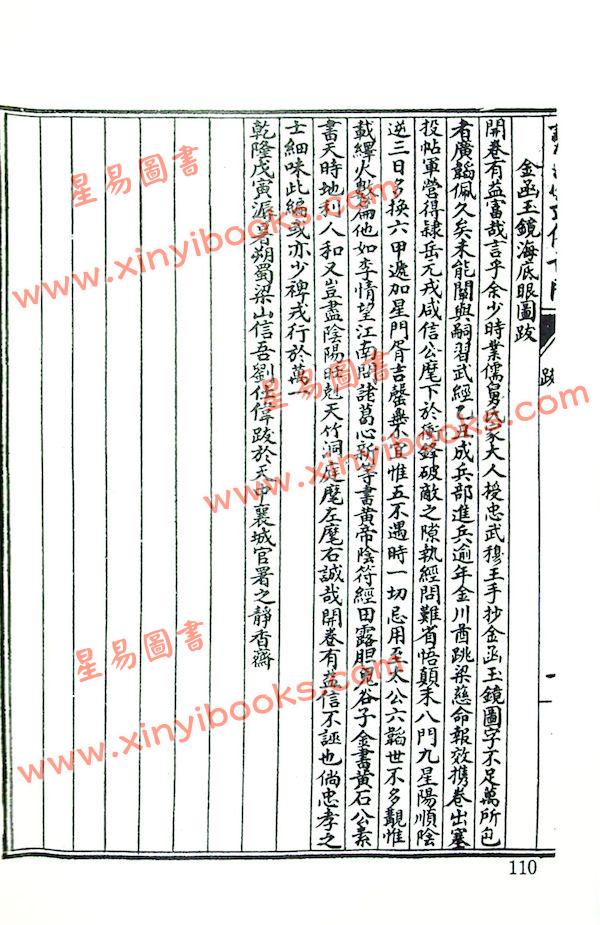 金函玉鏡海底眼圖跋
開卷有益富哉言乎余少時業儒舅氏家大人授忠武穆王手抄金函玉鏡圖字不足萬所包
者廣韜佩久矣未能闡與嗣習武經乙丑成兵部進兵逾年金川酋跳梁慈命報效携卷出塞
投帖軍營得隸岳元戎咸信公麾下於 鋒破敵之隙執經問難省悟顛末八門九星陽順陰
逆三日多換六甲遞加星門胥吉罄無不宜惟五不遇時一切忌用至太公六韜世不多覯惟
載繹火數篇他如李情望江南問諸葛心新等書黃帝陰符經田露胆鬼谷子金書黃石公素
書天時地利人和又豈盡陰陽時尅天竹洞庭麾左麾右誠哉開卷有益信不誣也倘忠孝之
士細味此編或亦少裨戎行於萬一
乾隆戊寅 暑朔蜀梁山信吾劉任偉跋於天中襄城官署之靜香齋
跋
一
110
星易圖書
www.xinyibooks.com
星易圖書
www.xinyibooks.com
星易圖書
www.xinyibooks.com